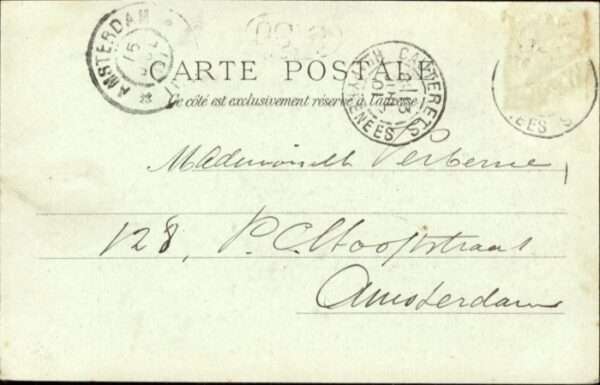 AMSTERDAM
CARTE POSTALE
Ce côté est exclusivement réservé à l'adresse
CAUTERETS
HTES PYRENEES
NEES
Mademoiselle Verberne
128, P. C. Hooftstraat
Amsterdam